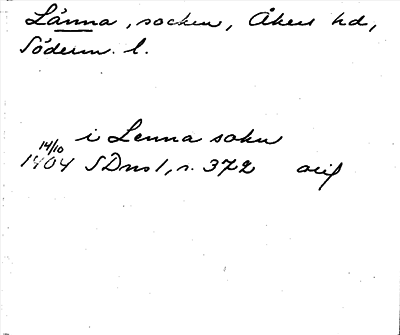 Länna, socken, Åkers hd,
Söderm. l.
i Lenna sokn
14/10
1404 SDns 1, s. 372 orig